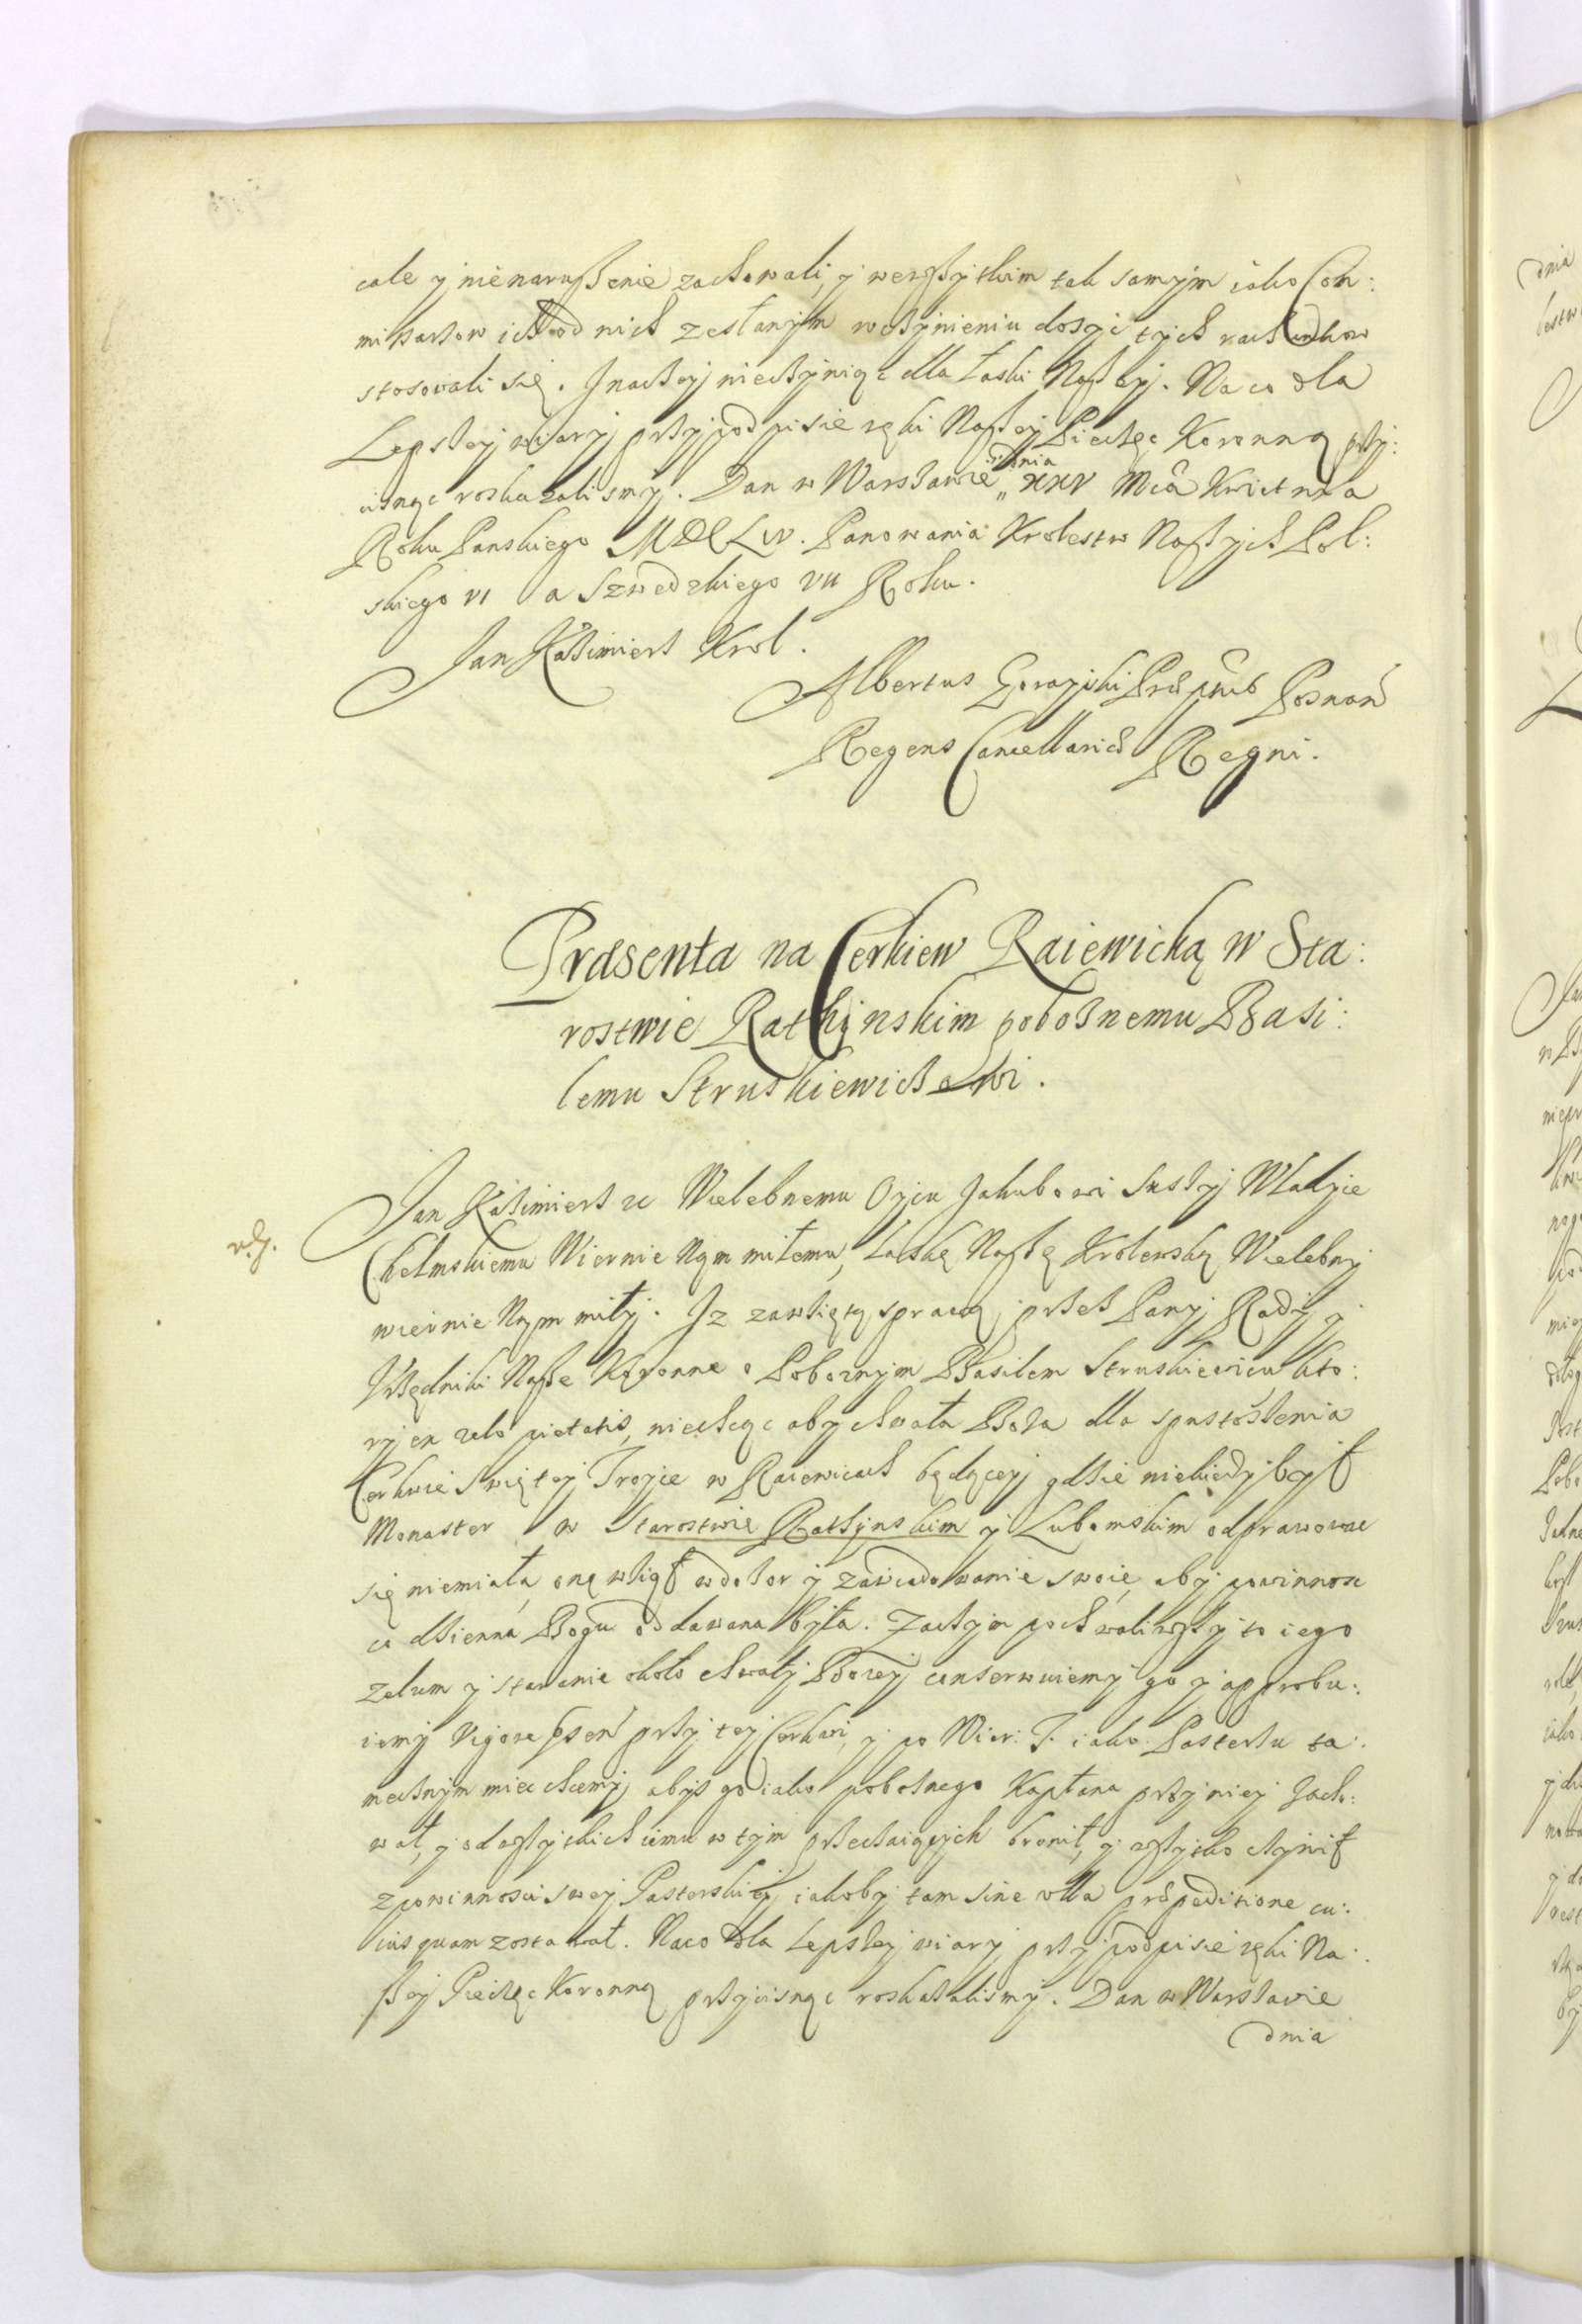 cale y nienaruszenie zachowali, y wewszytkim tak samym iako Com:
missarzow ich od nich zesłanym wczynieniu dosyć tych rachunkow
stosowali się. Jnaczey nieczyniąc dla łaski Naszey. Na co dla
Lepszey wiary przy podpisie ręki Naszey Pieczęc Koronną przy:
cisnąc roskazalismy. Dan w Warszawie dnia XXV Mca Kwietnia
Roku Panskiego MDCLIV. Panowania Krolestw Naszych Pol:
skiego VI a Szwedzkiego VII Roku.
Jan Kazimierz Krol.
Albertus Gorayski Posnan
Regens Cancellariæ Regni.
Præsenta na Cerkiew Raiewicką w Sta:
rostwie Rathynskim pobożnemu Basi:
lemu Struskiewiczowi.
Jan Kazimierz &c Wielebnemu Oycu Jakubowi Suszy Władyce
v. J.
Chełmskiemu Wiernie Nym miłemu, łaskę Naszę Krolewską, Wielebny
wiernie Nym miły. Iz zawziętą sprawą przez Pany Rady y
Vrzędniki Nasze Koronne o Pobożnym Basilem Struskiewiczu kto:
ry ex zelo pietatis, niechcąc aby chwała Boża dla spustószenia
Cerkwie Swiętey Troyce w Raiewicach będącey gdzie niekiedy był
Monaster w Starostwie Rathynskim y Lubomskim odprawowac
się niemiała, onę wziął w dozor y zawiadowanie swoie, aby powinnosc
co dzienna Bogu oddawana była. Zaczym pochwaliwszy to iego
zelum y staranie około chwały Bozey conserwuiemy go y approbu:
iemy Vigore psen przy tey Cerkwi, y po Wier: T. iako Pasterzu ta:
mecznym miec chcemy, abys go iako pobożnego Kapłana przy niey zacho:
wał, y od wszytkich iemu w tym przeczaiących bronił, y wszytko czynił
z powinnosci swey Pasterskiey, iakoby tam sine vlla præpeditione cu:
iusquam zostawał. Naco dla Lepszey wiary przy podpisie ręki Na:
szey Pieczęc Koronną przycisnąc roskazalismy. Dan w Warszawie
dnia